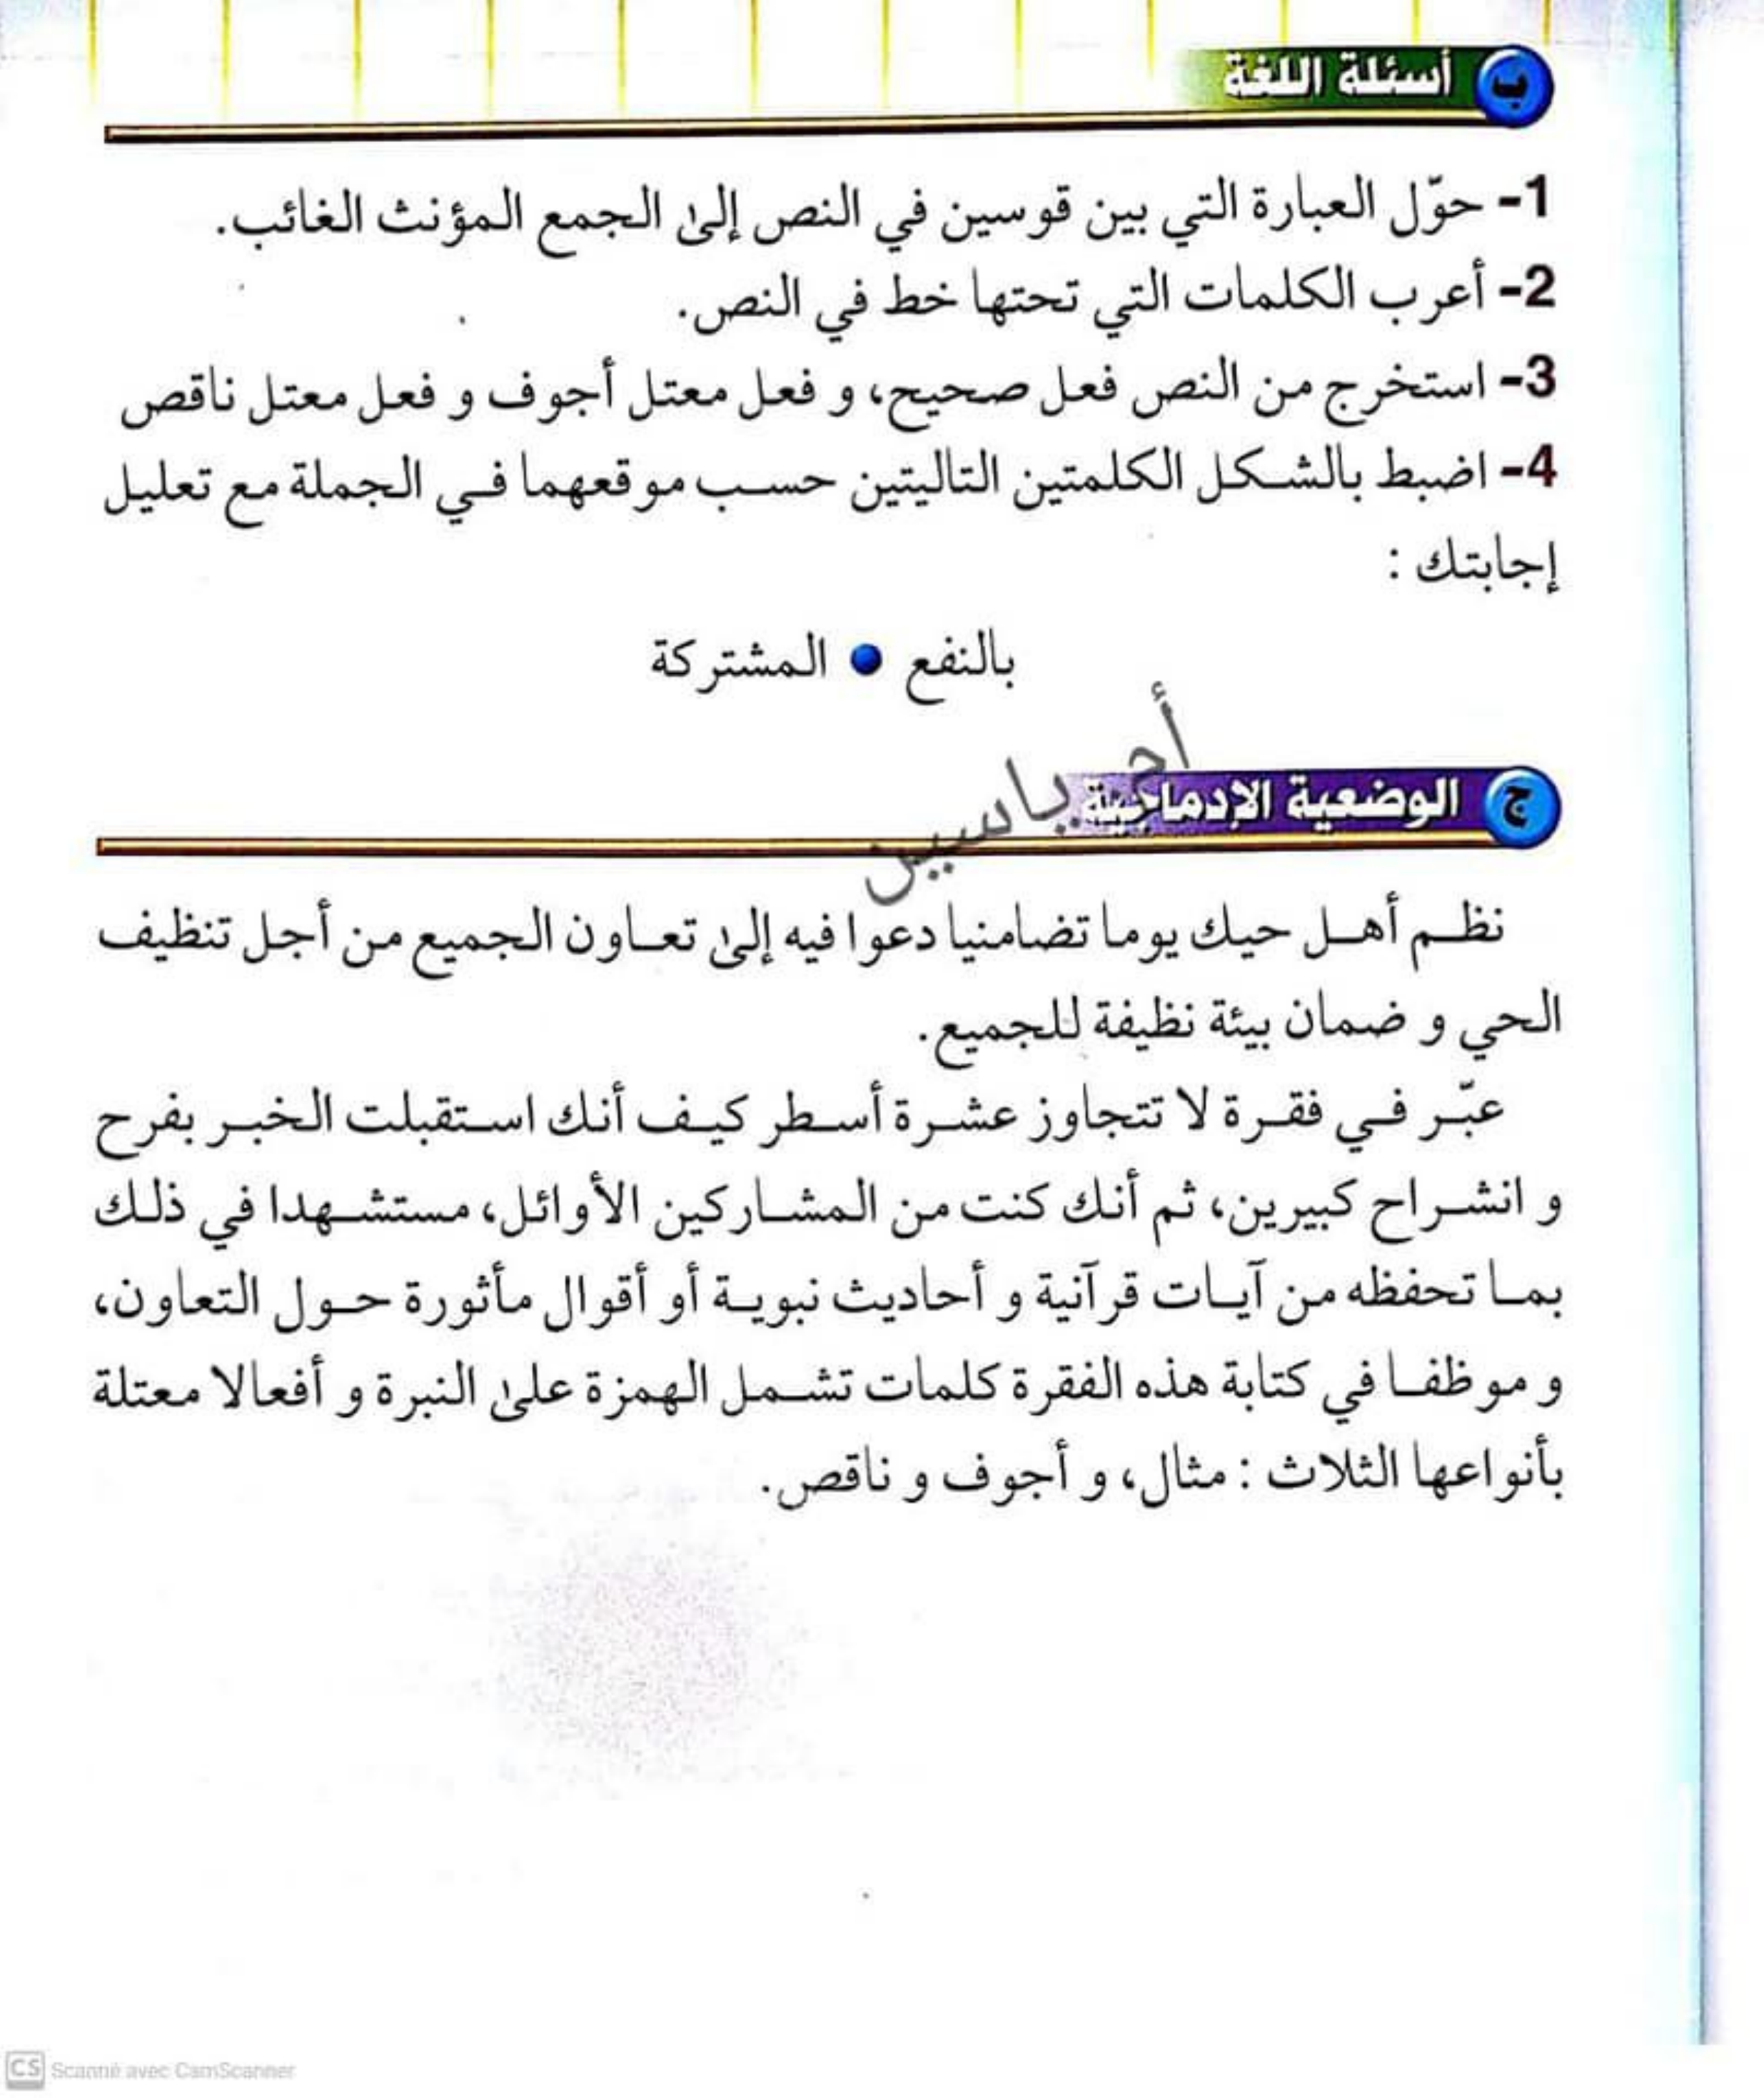 ب أسئلة اللغة
1- حوّل العبارة التي بين قوسين في النص إلى الجمع المؤنث الغائب.
2- أعرب الكلمات التي تحتها خط في النص.
3- استخرج من النص فعل صحيح، و فعل معتل أجوف و فعل معتل ناقص
4- اضبط بالشكل الكلمتين التاليتين حسب موقعهما في الجملة مع تعليل
إجابتك :
بالنفع • المشتركة
ج الوضعية الإدماجية
ياسين
نظم أهل حيك يوما تضامنيا دعوا فيه إلى تعاون الجميع من أجل تنظيف
الحي و ضمان بيئة نظيفة للجميع.
عبّر في فقرة لا تتجاوز عشرة أسطر كيف أنك استقبلت الخبر بفرح
و انشراح كبيرين، ثم أنك كنت من المشاركين الأوائل، مستشهدا في ذلك
بما تحفظه من آيات قرآنية و أحاديث نبوية أو أقوال مأثورة حول التعاون،
و موظفا في كتابة هذه الفقرة كلمات تشمل الهمزة على النبرة و أفعالا معتلة
بأنواعها الثلاث : مثال، و أجوف و ناقص.
CS Scanné avec CamScanner